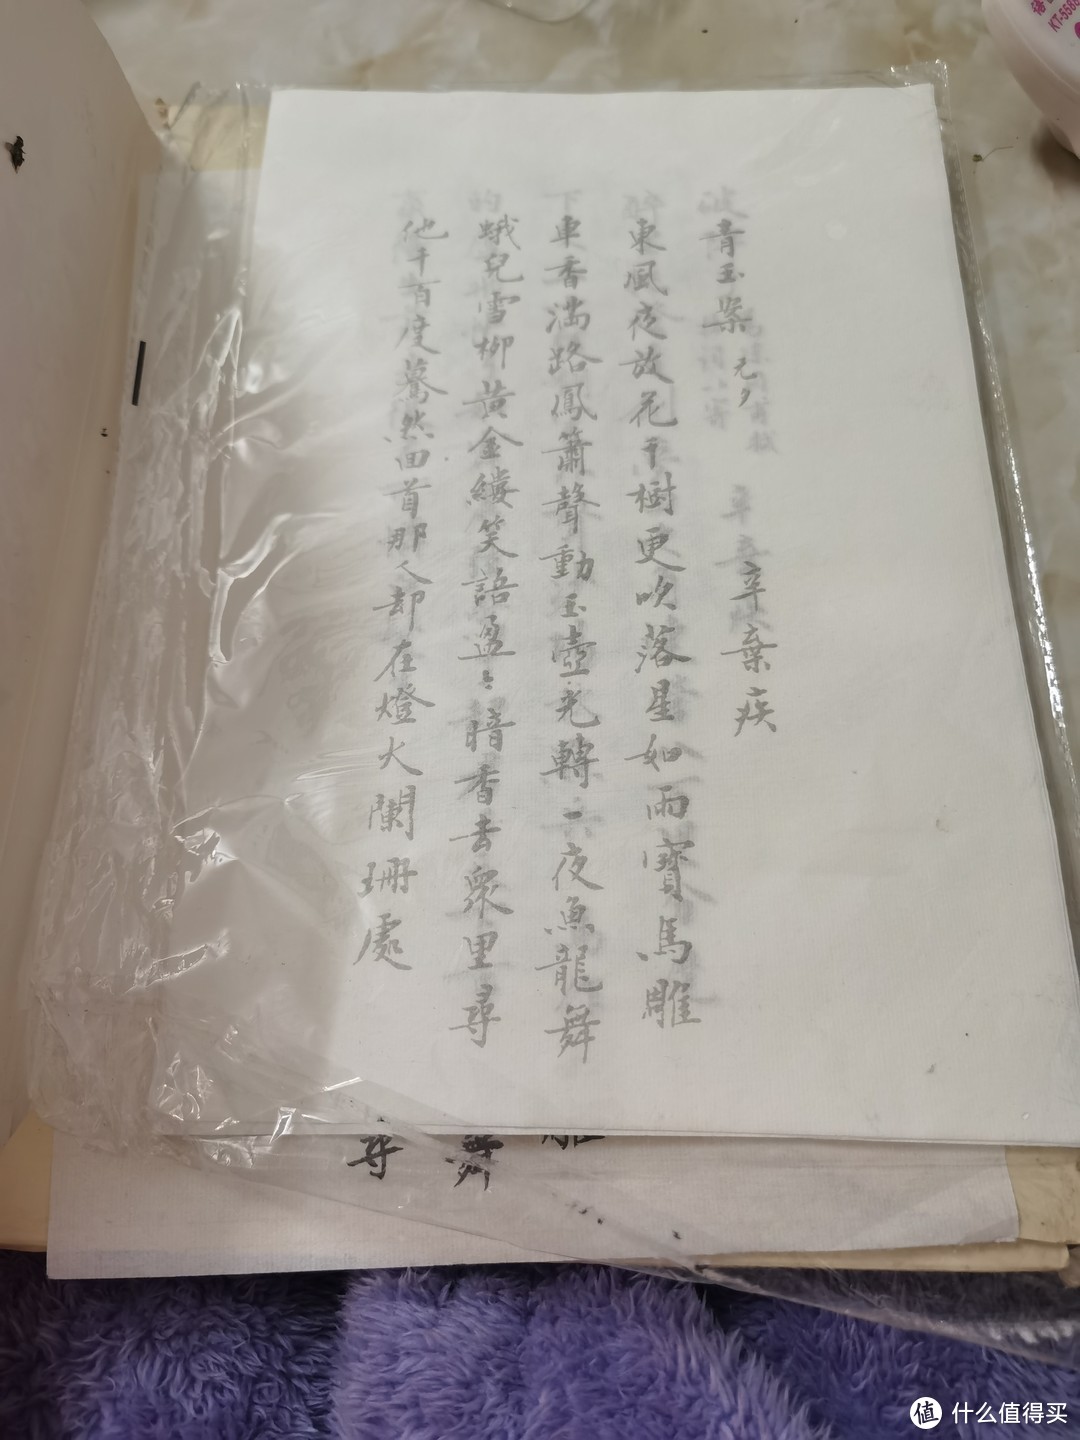 青玉案 元夕 辛棄疾
東風夜放花千樹更吹落星如雨寶馬雕
車香滿路鳳簫聲動玉壺光轉一夜魚龍舞
蛾兒雪柳黃金縷笑語盈〻暗香去眾里尋
他千百度驀然回首那人却在燈火闌珊處
雕
舞
尋
KT-5565
值 什么值得买